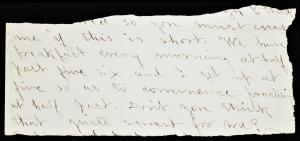 so you must excuse
me if this is short. We have
breakfast every morning at half
past five six and I get up at
five so as to commence practice
at half past. Don't you think
that quite smart for me?